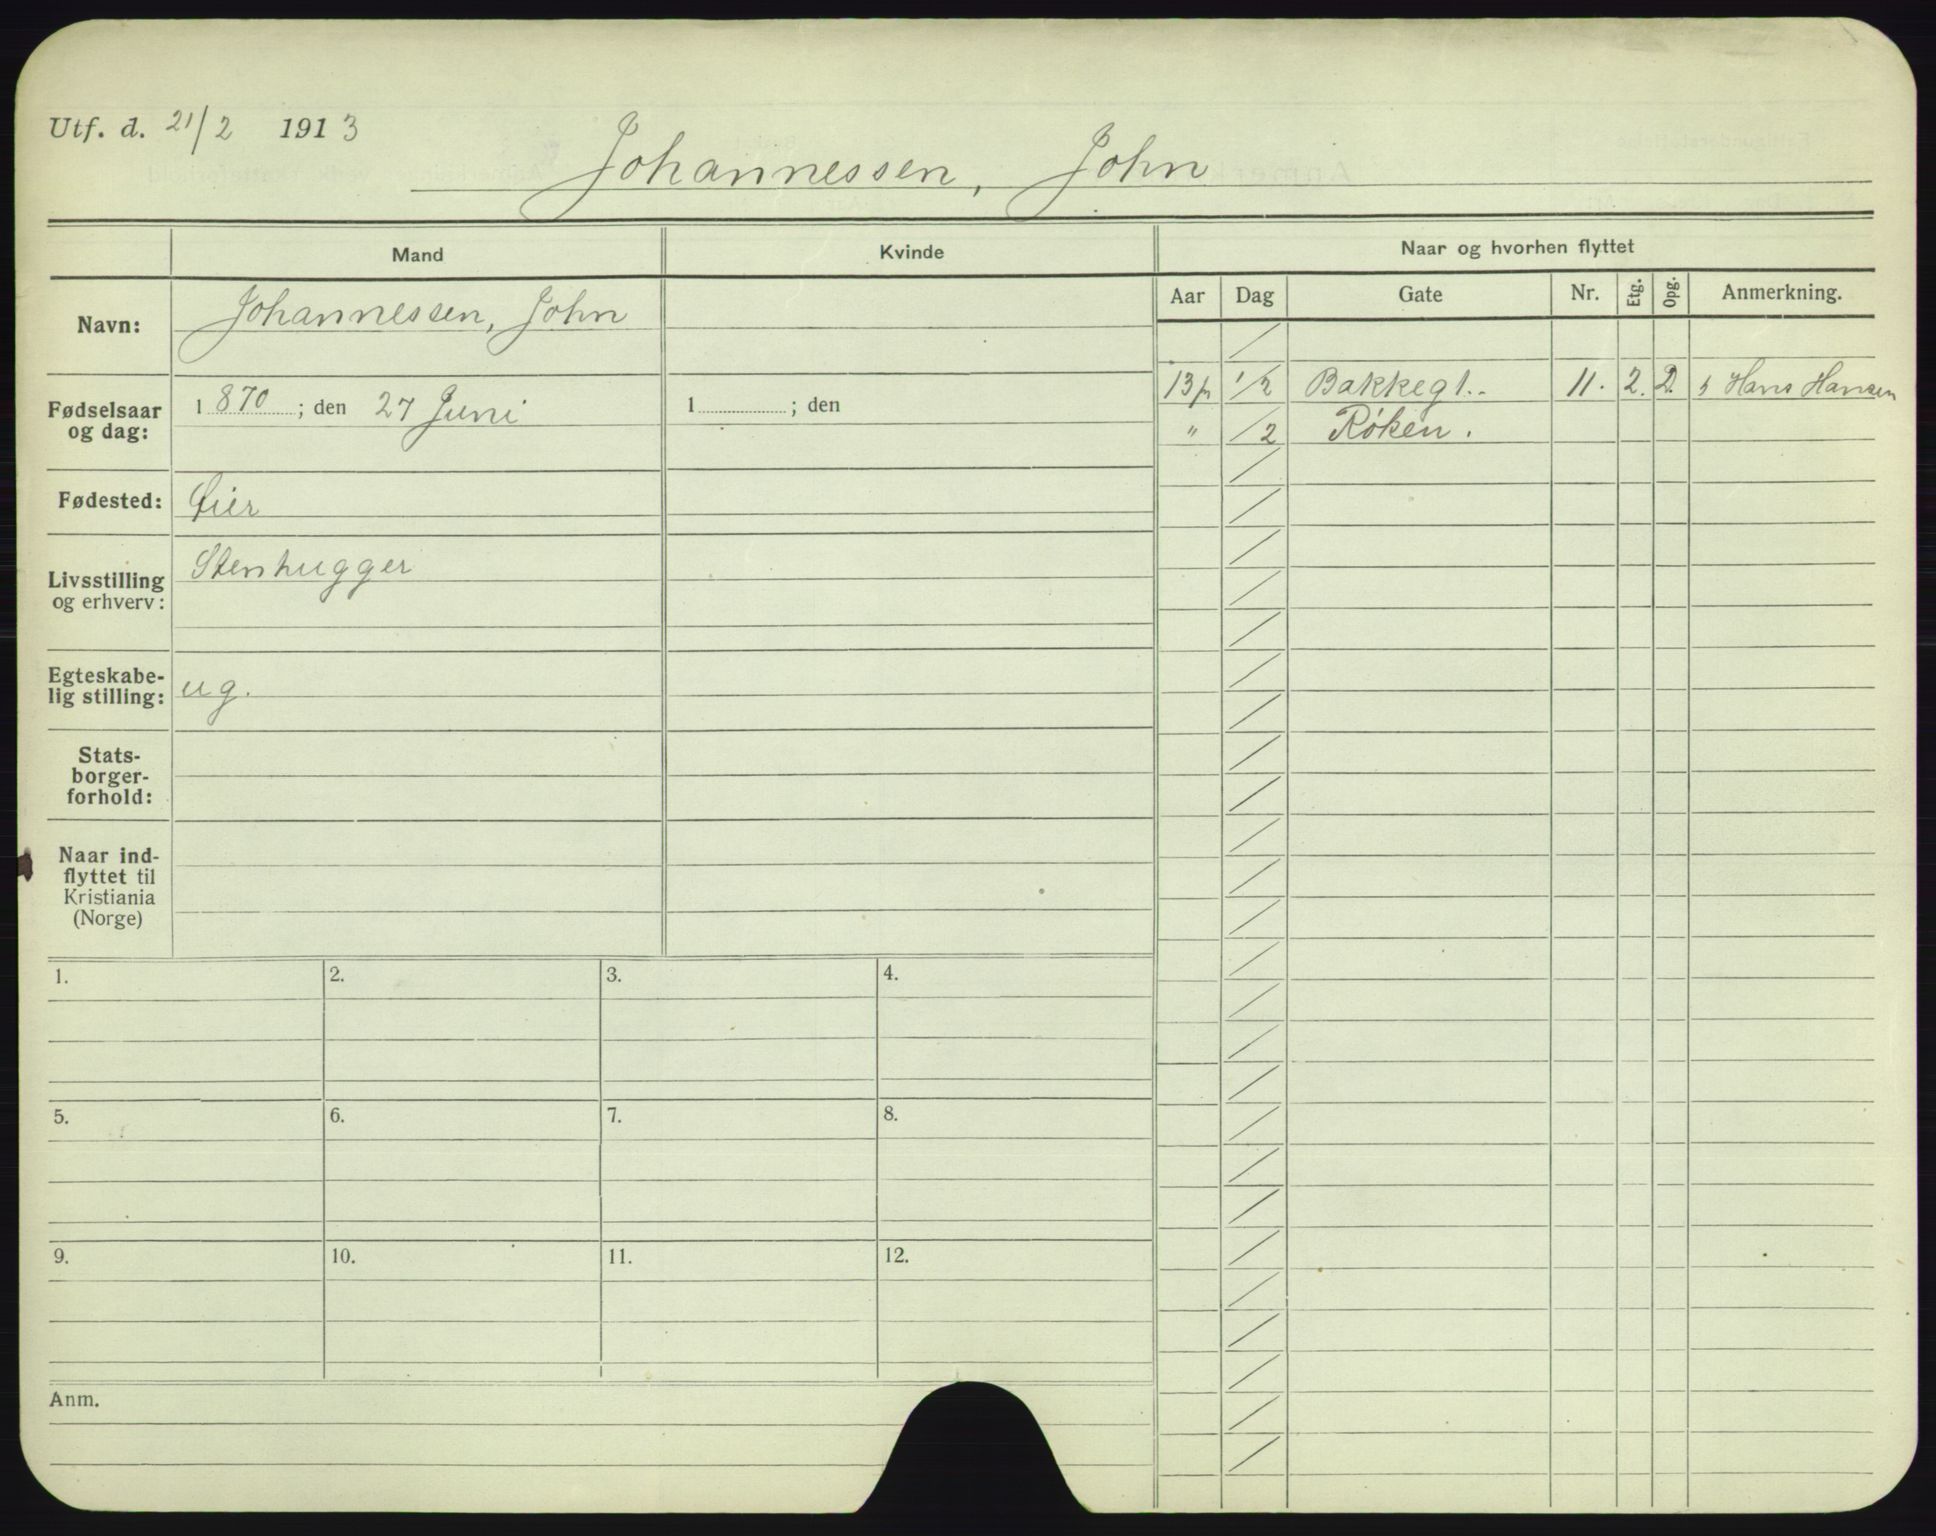 Utf. d. 21/2 1913
Johannessen, John
Mand
Kvinde
Naar og hvorhen flyttet
Aar Dag Gate Nr. Etg. Opg. Anmerkning.
Navn: Johannessen, John
Fødselsaar og dag: 1870; den 27 Juni
1 ; den
Fødested: Øier
Livsstilling og erhverv: Stenhugger
Egteskabe-
lig stilling: ug.
Stats-
borger-
forhold:
Naar ind-
flyttet til
Kristiania
(Norge)
13 1/2 Bakkegt. 11. 2. D. Hans Hansen
" /2 Røken.
1. 2. 3. 4.
5. 6. 7. 8.
9. 10. 11. 12.
Anm.